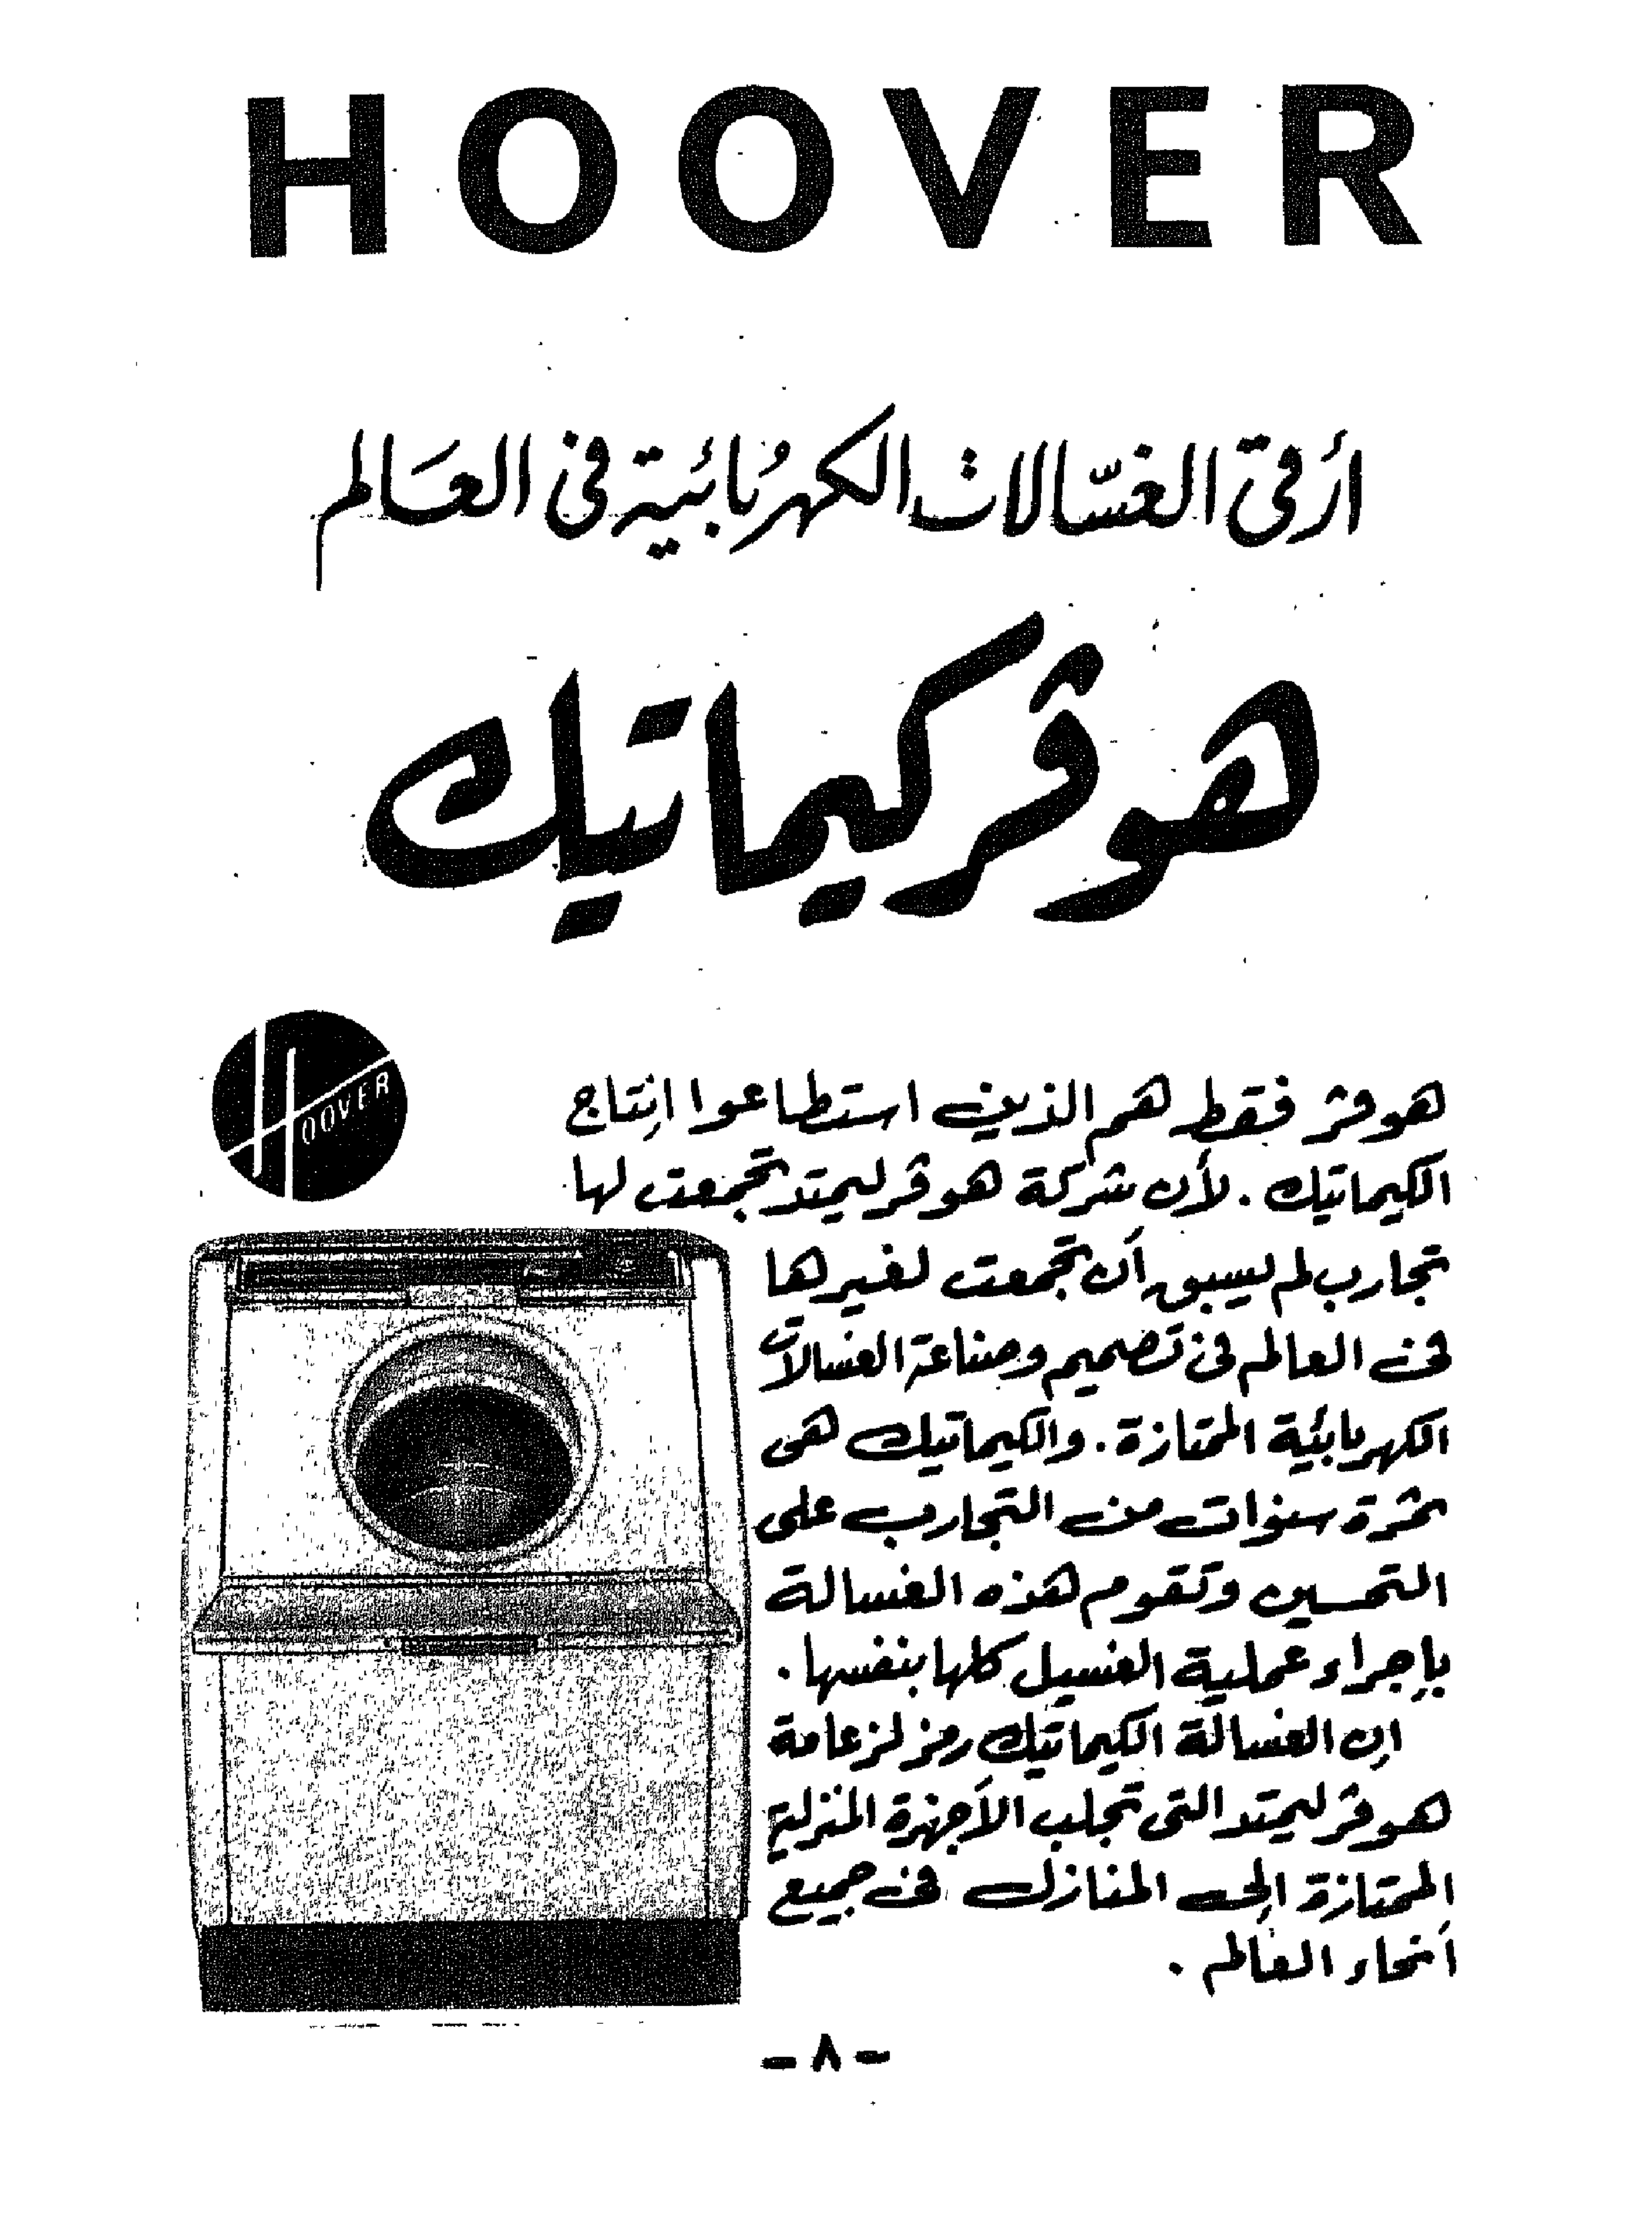 HOOVER
أرقى الغسّالات الكهربائية فى العالم
هوڤر كيماتيك
HOOVER
هوڤر فقط هم الذين استطاعوا إنتاج
الكيماتيك . لأن شركة هوڤر ليمتد تجمعت لها
تجارب لم يسبق أن تجمعت لغيرها
فى العالم فى تصميم وصناعة الغسالات
الكهربائية الممتازة . والكيماتيك هى
ثمرة سنوات من التجارب على
التحسين وتقوم هذه الغسالة
بإجراء عملية الغسيل كلها بنفسها .
إن الغسالة الكيماتيك رمز لزعامة
هوڤر ليمتد التى تجلب الأجهزة المنزلية
الممتازة إلى المنازل فى جميع
أنحاء العالم .
- ٨ -